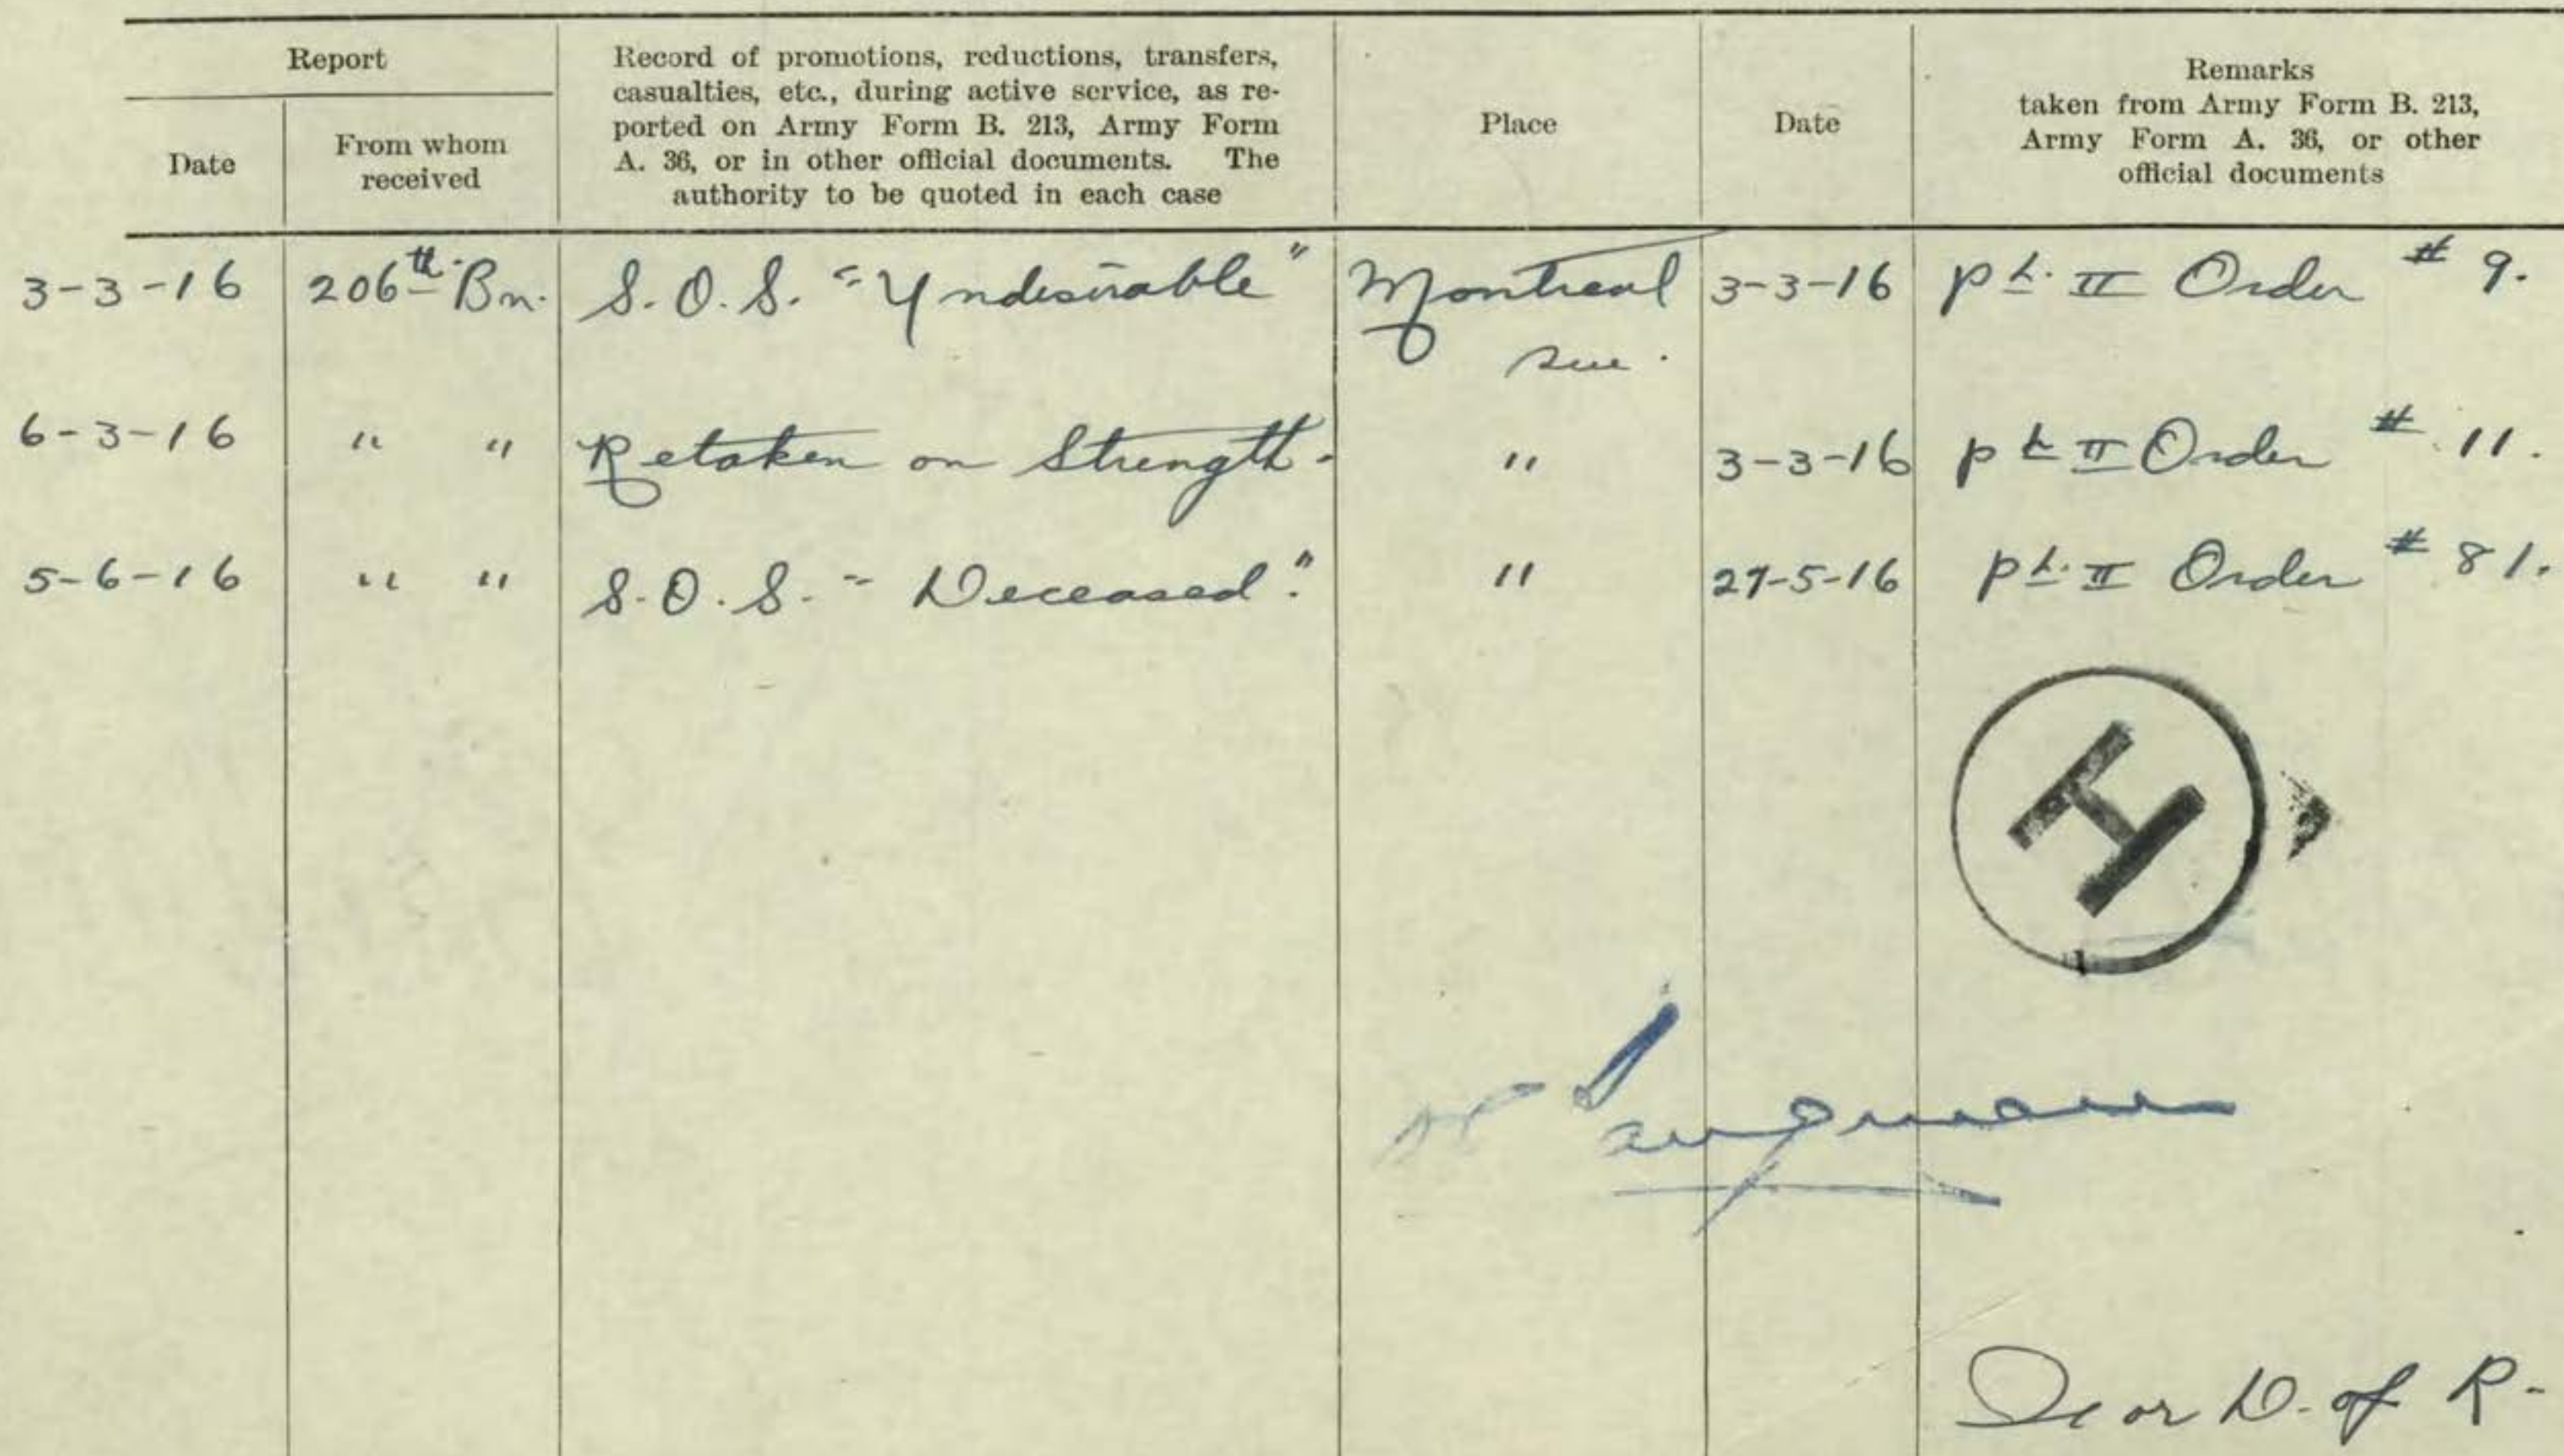 Report
Date
From whom
received
Record of promotions, reductions, transfers,
casualties, etc., during active service, as re-
ported on Army Form B. 213, Army Form
A. 36, or in other official documents. The
authority to be quoted in each case
Place
Date
Remarks
taken from Army Form B. 213,
Army Form A. 36, or other
official documents
3-3-16 206th Bn. S.O.S. "Undesirable" Montreal 3-3-16 pt. II Order # 9.
6-3-16 " " Retaken on Strength. " 3-3-16 pt II Order # 11.
5-6-16 " " S.O.S. - Deceased." " 27-5-16 pt. II Order # 81.
H
or D. of R-